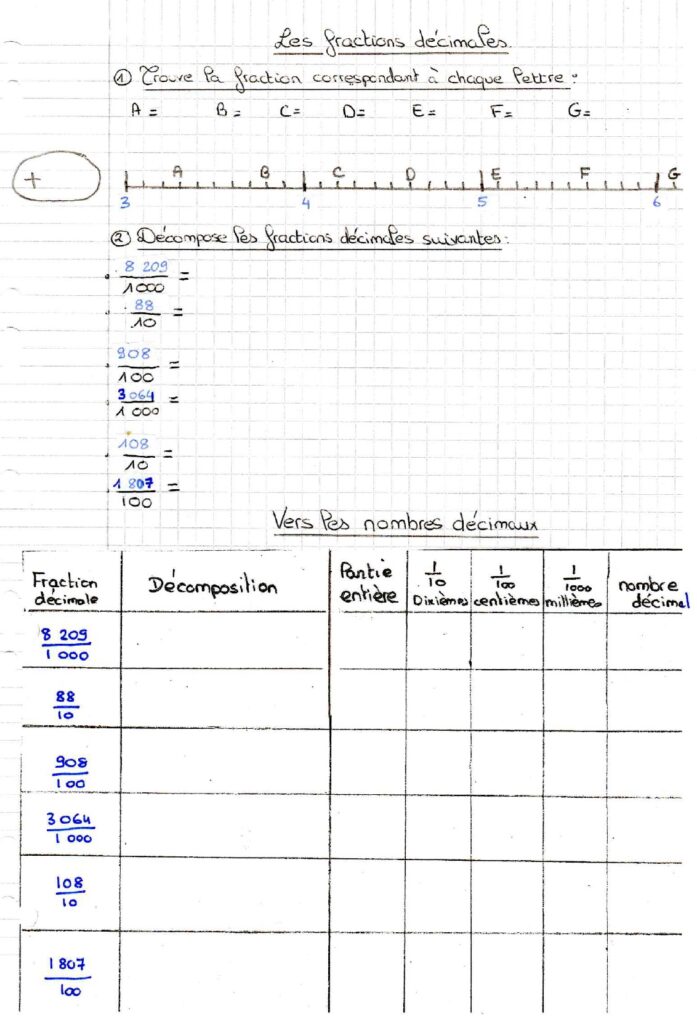 Les fractions décimales.
① Trouve la fraction correspondant à chaque lettre :
A = B = C = D= E = F= G=
+ A B C D E F G
3 4 5 6
② Décompose les fractions décimales suivantes :
8 209
1000 =
88
10 =
908
100 =
3 064
1 000 =
108
10 =
1 807
100 =
Vers les nombres décimaux
Fraction décimale Décomposition Partie entière 1/10 Dixièmes 1/100 centièmes 1/1000 millièmes nombre décimal
8 209
1 000
88
10
908
100
3 064
1 000
108
10
1 807
100